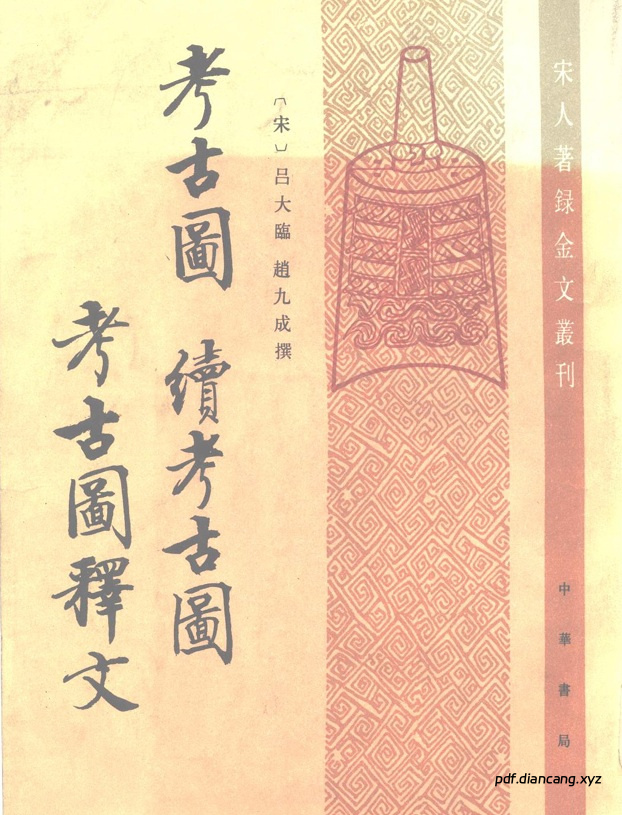 宋人著録金文叢刊
中華書局
〔宋〕吕大臨 趙九成撰
考古圖 續考古圖
考古圖釋文
pdf.diancang.xyz